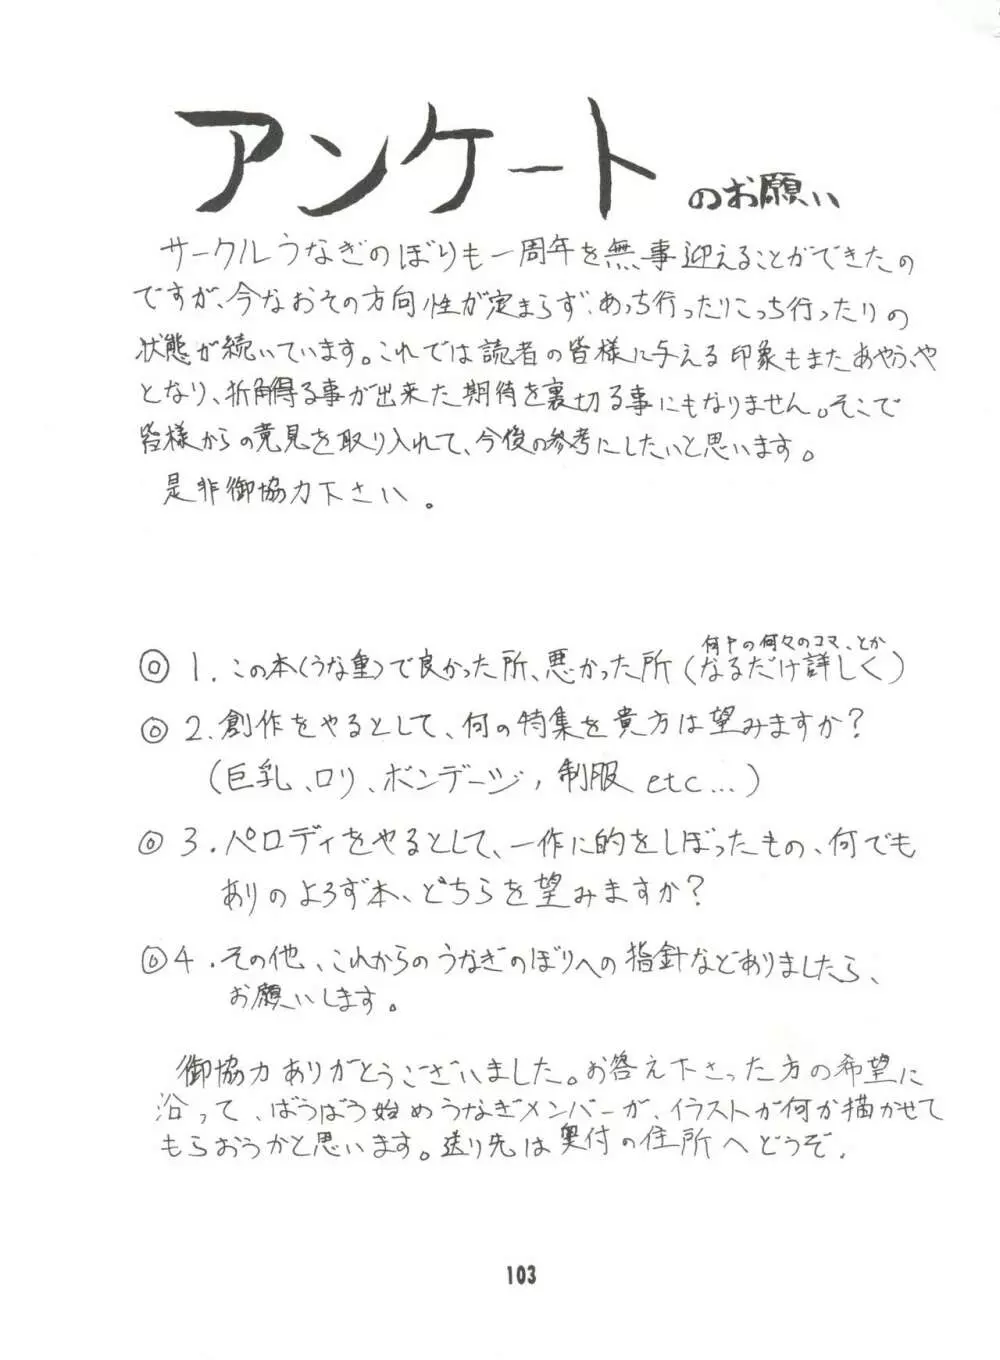 アンケートのお願い
サークルうなぎのぼりも一周年を無事迎えることができたの
ですが、今なおその方向性が定まらず、あっち行ったりこっち行ったりの
状態が続いています。これでは読者の皆様に与える印象もまたあやふや
となり、折角得る事が出来た期待を裏切る事にもなりません。そこで
皆様からの意見を取り入れて、今後の参考にしたいと思います。
是非御協力下さい。
何頁の何々のコマ、とか
◎1.この本(うな重)で良かった所、悪かった所(なるだけ詳しく)
◎2.創作をやるとして、何の特集を貴方は望みますか?
(巨乳、ロリ、ボンデージ,制服 etc...)
◎3.パロディをやるとして、一作に的をしぼったもの、何でも
ありのよろず本、どちらを望みますか?
◎4.その他、これからのうなぎのぼりへの指針などありましたら、
お願いします。
御協力ありがとうございました。お答え下さった方の希望に
沿って、ばうばう始めうなぎメンバーが、イラストが何か描かせて
もらおうかと思います。送り先は奥付の住所へどうぞ.
103